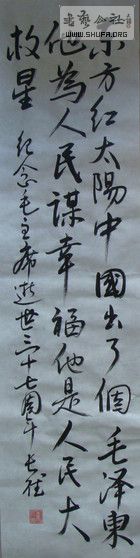 書藝公社
WWW.SHUFA.ORG
东方红太陽中國出了個毛泽東
他為人民謀幸福他是人民大
救星 纪念毛主席逝世三十七周年